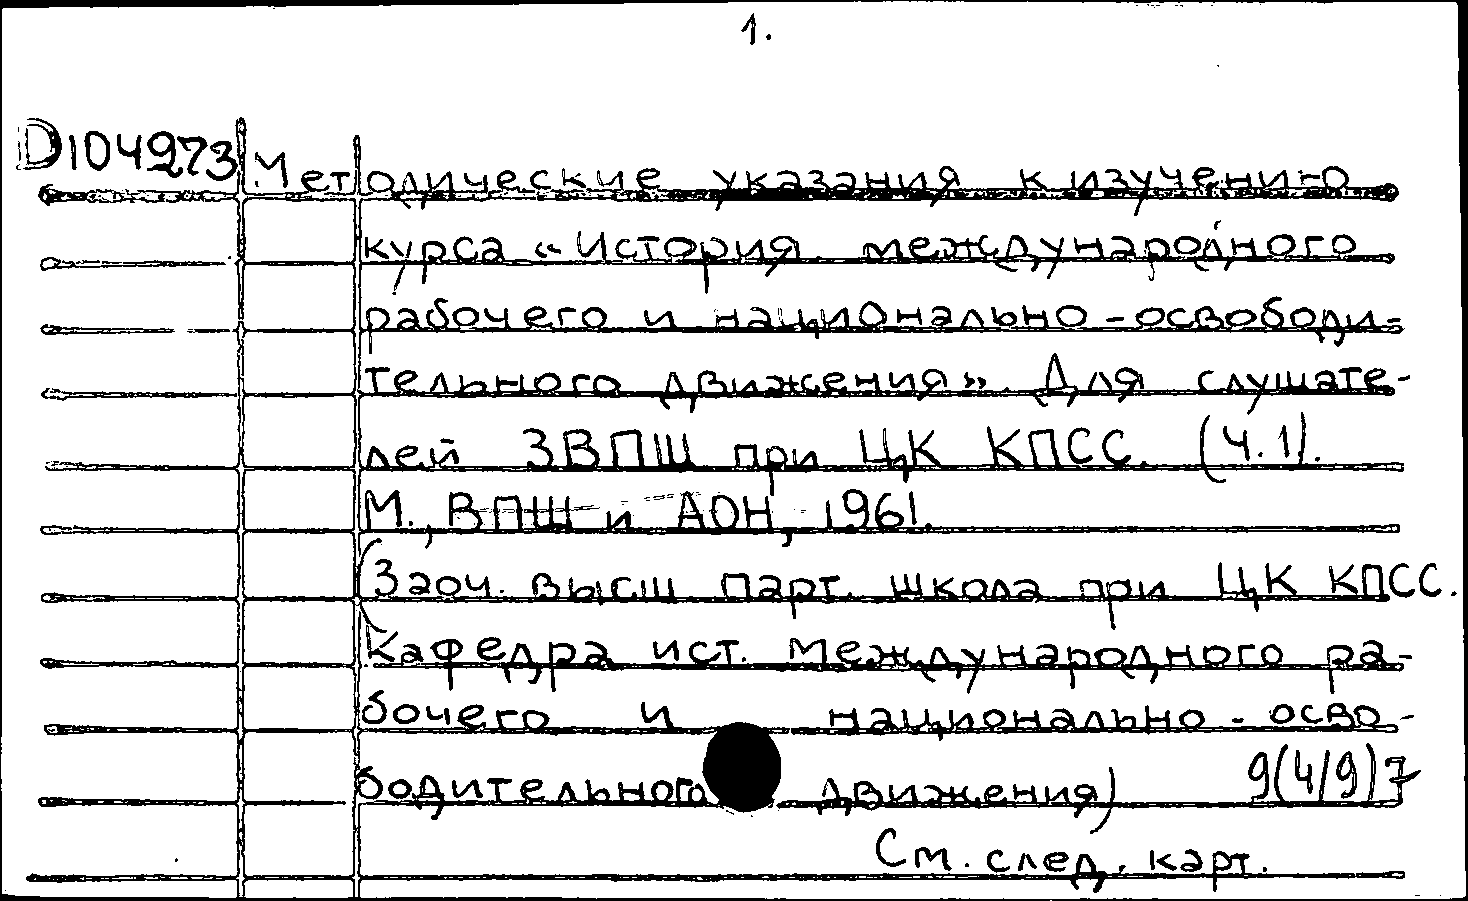 1.
D104273 Методические указания к изучению
курса «История международного
рабочего и национально-освободи-
тельного движения». Для слушате-
лей ЗВПШ при ЦК КПСС. (Ч.1).
М., ВПШ и АОН, 1961.
(Заоч. высш парт. школа при ЦК КПСС.
Кафедра ист. международного ра-
бочего и национально-осво-
бодительного движения) 9(4/9)7
См. след. карт.